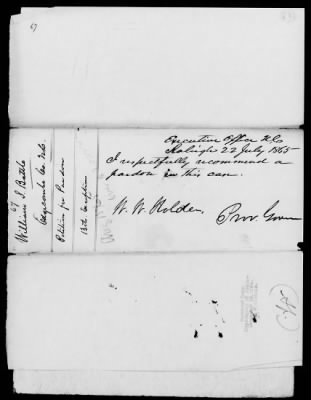 67
67
William S. Battle
Edgecombe Co. N.C.
Petition for Pardon
13th Exception
Executive Office N.C.
Raleigh 22 July 1865
I respectfully recommend a
pardon in this case.
W. W. Holden,
Prov Govr